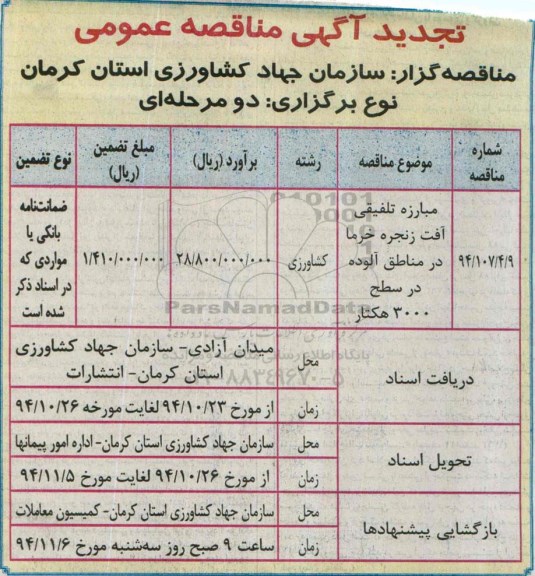 تجدید آگهی مناقصه عمومی
مناقصه‌گزار: سازمان جهاد کشاورزی استان کرمان
نوع برگزاری: دو مرحله‌ای
شماره مناقصه
موضوع مناقصه
رشته
برآورد (ریال)
مبلغ تضمین (ریال)
نوع تضمین
۹۴/۱۰۷/۴/۹
مبارزه تلفیقی
آفت زنجره خرما
در مناطق آلوده
در سطح
۳۰۰۰ هکتار
کشاورزی
۲۸/۸۰۰/۰۰۰/۰۰۰
۱/۴۱۰/۰۰۰/۰۰۰
ضمانت‌نامه
بانکی یا
مواردی که
در اسناد ذکر
شده است
ParsNamadData
دریافت اسناد
محل
میدان آزادی- سازمان جهاد کشاورزی
استان کرمان- انتشارات
زمان
از مورخ ۹۴/۱۰/۲۳ لغایت مورخه ۹۴/۱۰/۲۶
تحویل اسناد
محل
سازمان جهاد کشاورزی استان کرمان- اداره امور پیمانها
زمان
از مورخ ۹۴/۱۰/۲۶ لغایت مورخ ۹۴/۱۱/۵
بازگشایی پیشنهادها
محل
سازمان جهاد کشاورزی استان کرمان- کمیسیون معاملات
زمان
ساعت ۹ صبح روز سه‌شنبه مورخ ۹۴/۱۱/۶